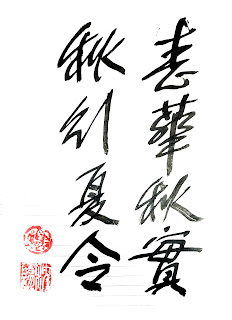 春華秋實
秋行夏令